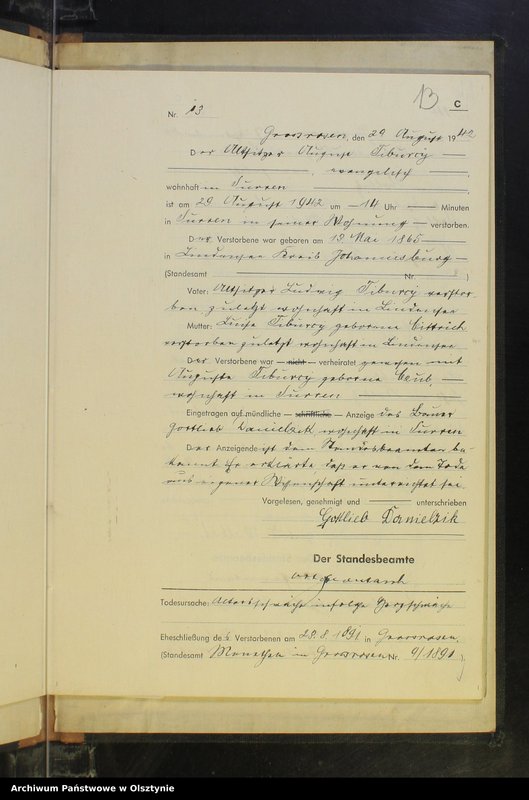 13 C
Nr. 13
Grossrosen, den 29 August 1942
Der Altsitzer August Tiburcy
evangelisch
wohnhaft in Turren
ist am 29 August 1942 um 14 Uhr Minuten
in Turren in seiner Wohnung verstorben.
Der Verstorbene war geboren am 13. Mai 1865
in Lindensee Kreis Johannisburg
(Standesamt Nr. )
Vater: Altsitzer Ludwig Tiburcy verstor
ben zuletzt wohnhaft in Lindensee
Mutter: Tiburcy geborene
verstorben zuletzt wohnhaft in Lindensee
Der Verstorbene war — nicht — verheiratet gewesen mit
Auguste Tiburcy geborene
wohnhaft in Turren
Eingetragen auf mündliche — schriftliche — Anzeige des Bauer
Gottlieb Danielzik wohnhaft in Turren
Der Anzeigende ist dem Standesbeamten be-
kannt. Er erklärte, daß er von dem Tode
aus eigener Wissenschaft unterrichtet sei
Vorgelesen, genehmigt und unterschrieben
Gottlieb Danielzik
Der Standesbeamte
Todesursache: Altersschwäche infolge Herzschwäche
Eheschließung des Verstorbenen am 28.8.1891 in Grossrosen.
(Standesamt Monethen in Grossrosen Nr. 9/1891)
Archiwum Państwowe w Olsztynie